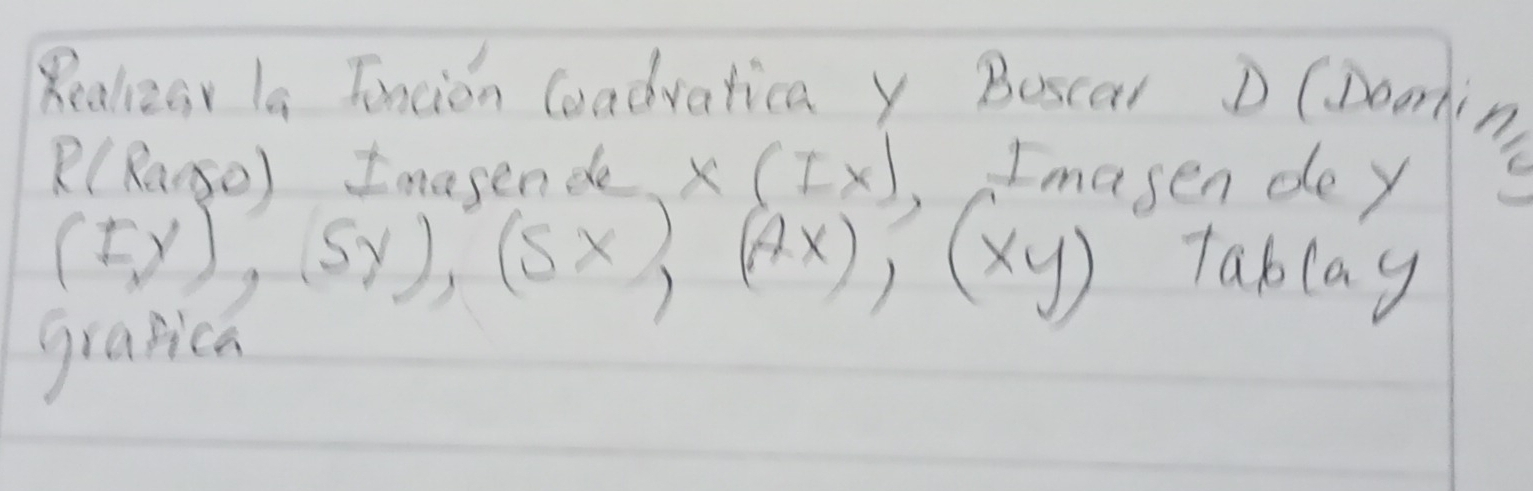 Realizar la Función Cuadratica y Buscar D (Dominio
R(Rango) Imagen de x (Ix), Imagen de y
(Iy), (Sy), (Sx), (Ax), (xy) Tabla y
grafica